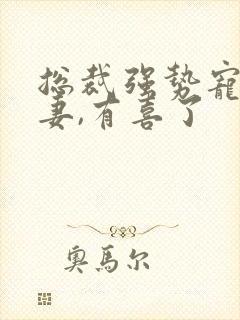 总裁强势宠
妻,有喜了
奥馬尔